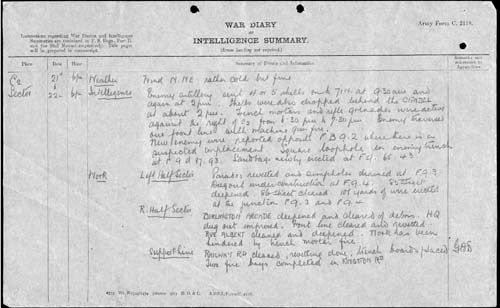 WAR DIARY
or
INTELLIGENCE SUMMARY.
(Erase heading not required.)
Army Form C. 2118.
Instructions regarding War Diaries and Intelligence
Summaries are contained in F. S. Regs., Part II.
and the Staff Manual respectively. Title pages
will be prepared in manuscript.
Place Date Hour Summary of Events and Information
C2 21st 6pm Weather Wind N.NE. rather cold but fine
Sector 22nd 6pm Intelligence Enemy artillery sent H.V 5 shells onto at 9.30am and
again at 2pm. Shells were also dropped behind the CITADEL
at about 2pm. Trench mortars and rifle grenades were active
against the right of C2 from 6.30pm to 7.30pm. Enemy traverses
our front line with machine gun fire.
New enemy wire reported opposite F.B.9.2 where there is a
suspected emplacement. Square loophole in enemy trench
at F.9.d.17.93. Sandbags newly erected at F.9.
Work Left Half Sector Parados revetted and sumpholes cleared at F.9.3
Dugout under construction at F.9.4. street
deepened. street cleared. yards of wire erected
at the junction F.9.3 and F.9.4
R. Half Sector BURLINGTON ARCADE deepened and cleared of debris. HQ
dug out improved. Front line cleared and revetted
RUE ALBERT cleared and deepened. Work has been
hindered by trench mortar fire.
Support Line RAILWAY RD cleared, revetting done, trench boards placed
Two fire bays completed in KINGSTON RD